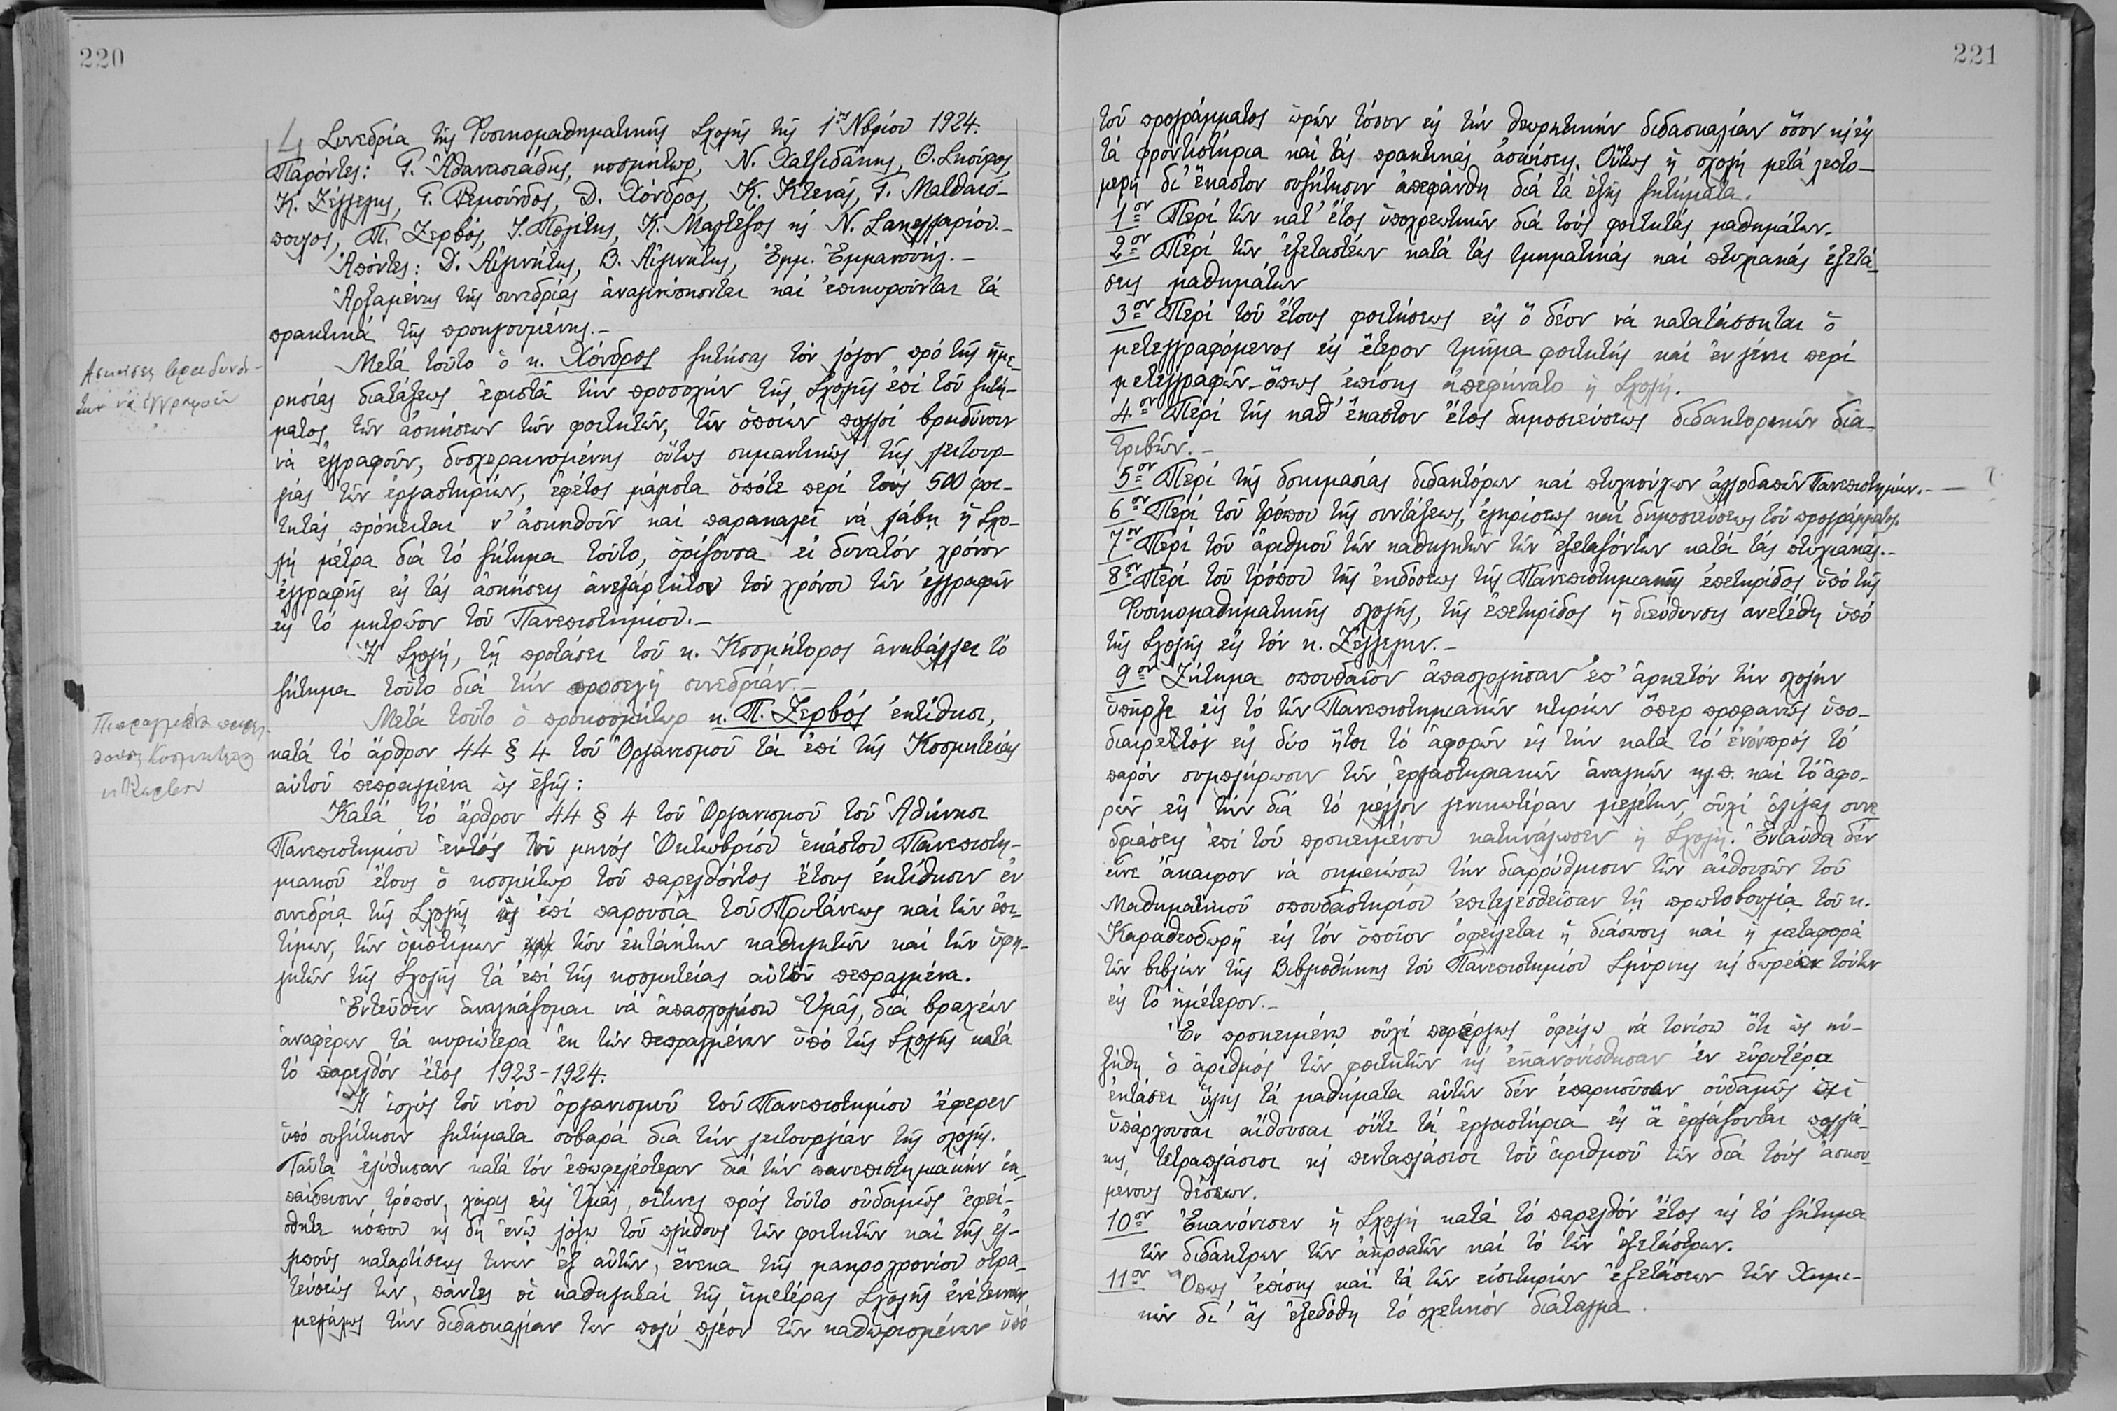 220
4 Συνεδρία τῆς Φυσικομαθηματικῆς Σχολῆς τῆς 1ης Νβρίου 1924.
Παρόντες: Γ. Ἀθανασιάδης, κοσμήτωρ, Ν. Χατζιδάκης, Θ. Σκούφος,
Κ. Ζέγγελης, Γ. Ρεμούνδος, Δ. Χόνδρος, Κ. Κτενᾶς, Γ. Ματθαιό-
πουλος, Π. Ζερβός, Ἰ. Πολίτης, Κ. Μαλτέζος κ Ν. Σακελλαρίου.-
Ἀπόντες: Δ. Αἰγινήτης, Β. Αἰγινήτης, Ἐμμ. Ἐμμανουήλ.-
Ἀρξαμένης τῆς συνεδρίας ἀναγινώσκονται καί ἐπικυροῦνται τά
πρακτικά τῆς προηγουμένης.-
Μετά τοῦτο ὁ κ. Χόνδρος ζητήσας τόν λόγον πρό τῆς ἡμε-
ρησίας διατάξεως ἐφιστᾶ τήν προσοχήν τῆς Σχολῆς ἐπί τοῦ ζητή-
ματος τῶν ἀσκήσεων τῶν φοιτητῶν, τῶν ὁποίων πολλοί βραδύνουν
νά ἐγγραφοῦν, δυσχεραινομένης οὕτως σημαντικῶς τῆς λειτουρ-
γίας τῶν ἐργαστηρίων, ἐφέτος μάλιστα ὁπότε περί τούς 500 φοι-
τητάς πρόκειται ν' ἀσκηθοῦν καί παρακαλεῖ νά λάβῃ ἡ Σχο-
λή μέτρα διά τό ζήτημα τοῦτο, ὁρίζουσα εἰ δυνατόν χρόνον
ἐγγραφῆς εἰς τάς ἀσκήσεις ἀνεξάρτητον τοῦ χρόνου τῶν ἐγγραφῶν
εἰς τό μητρῶον τοῦ Πανεπιστημίου.-
Ἡ Σχολή, τῇ προτάσει τοῦ κ. Κοσμήτορος ἀναβάλλει τό
ζήτημα τοῦτο διά τήν προσεχῆ συνεδρίαν.-
Μετά τοῦτο ὁ προκοσμήτωρ κ. Π. Ζερβός ἐκτίθησι,
κατά τό ἄρθρον 44 § 4 τοῦ Ὀργανισμοῦ τά ἐπί τῆς Κοσμητείας
αὐτοῦ πεπραγμένα ὡς ἑξῆς:
Κατά τό ἄρθρον 44 § 4 τοῦ Ὀργανισμοῦ τοῦ Ἀθήνησι
Πανεπιστημίου ἐντός τοῦ μηνός Ὀκτωβρίου ἑκάστου Πανεπιστη-
μιακοῦ ἔτους ὁ κοσμήτωρ τοῦ παρελθόντος ἔτους ἐκτίθησιν ἐν
συνεδρίᾳ τῆς Σχολῆς ἐπί παρουσίᾳ τοῦ Πρυτάνεως καί τῶν ἐπι-
τίμων, τῶν ὁμοτίμων τῶν ἐκτάκτων καθηγητῶν καί τῶν ὑφη-
γητῶν τῆς Σχολῆς τά ἐπί τῆς κοσμητείας αὐτοῦ πεπραγμένα.
Ἐντεῦθεν ἀναγκάζομαι νά ἀπασχολήσω Ὑμᾶς, διά βραχέων
ἀναφέρων τά κυριώτερα ἐκ τῶν πεπραγμένων ὑπό τῆς Σχολῆς κατά
τό παρελθόν ἔτος 1923-1924.
Ἡ ἰσχύς τοῦ νέου ὀργανισμοῦ τοῦ Πανεπιστημίου ἔφερεν
ὑπό συζήτησιν ζητήματα σοβαρά διά τήν λειτουργίαν τῆς σχολῆς.
Ταῦτα ἐλύθησαν κατά τόν ἐπωφελέστερον διά τήν πανεπιστημιακήν ἐκ-
παίδευσιν τρόπον, χάρις εἰς Ὑμᾶς, οἵτινες πρός τοῦτο οὐδαμῶς ἐφεί-
σθητε κόπου κ δή ἐνῷ λόγῳ τοῦ πλήθους τῶν φοιτητῶν καί τῆς ἐλ-
λιποῦς καταρτίσεως τινων ἐξ αὐτῶν, ἕνεκα τῆς μακροχρονίου στρα-
τεύσεώς των, πάντες οἱ καθηγηταί τῆς ἡμετέρας Σχολῆς ἐνέτειναν
μεγάλως τήν διδασκαλίαν των πολύ πλέον τῶν καθωρισμένων ὑπό
221
τοῦ προγράμματος ὡρῶν τόσον εἰς τήν θεωρητικήν διδασκαλίαν ὅσον κ εἰς
τά φροντιστήρια καί τάς πρακτικάς ἀσκήσεις. Οὕτως ἡ σχολή μετά λεπτο-
μερῆ δι' ἕκαστον συζήτησιν ἀπεφάνθη διά τά ἑξῆς ζητήματα.
1ον Περί τῶν κατ' ἔτος ὑποχρεωτικῶν διά τούς φοιτητάς μαθημάτων.
2ον Περί τῶν ἐξεταστέων κατά τάς τμηματικάς καί πτυχιακάς ἐξετά-
σεις μαθημάτων
3ον Περί τοῦ ἔτους φοιτήσεως εἰς ὅ δέον νά κατατάσσηται ὁ
μετεγγραφόμενος εἰς ἕτερον τμῆμα φοιτητής καί ἐν γένει περί
μετεγγραφῶν ὅπως ἐπίσης ἀπεφήνατο ἡ Σχολή.
4ον Περί τῆς καθ' ἕκαστον ἔτος δημοσιεύσεως διδακτορικῶν δια-
τριβῶν.-
5ον Περί τῆς δοκιμασίας διδακτόρων καί πτυχιούχων ἀλλοδαπῶν Πανεπιστημίων.-
6ον Περί τοῦ τρόπου τῆς συντάξεως, ἐγκρίσεως καί δημοσιεύσεως τοῦ προγράμματος.
7ον Περί τοῦ ἀριθμοῦ τῶν καθηγητῶν τῶν ἐξεταζόντων κατά τάς πτυχιακάς.-
8ον Περί τοῦ τρόπου τῆς ἐκδόσεως τῆς Πανεπιστημιακῆς ἐπετηρίδος ὑπό τῆς
Φυσικομαθηματικῆς σχολῆς, τῆς ἐπετηρίδος ἡ διεύθυνσις ἀνετέθη ὑπό
τῆς Σχολῆς εἰς τόν κ. Ζέγγελην.-
9ον Ζήτημα σπουδαῖον ἀπασχολῆσαν ἐπ' ἀρκετόν τήν σχολήν
ὑπῆρξε εἰς τό τῶν Πανεπιστημιακῶν κτιρίων ὅπερ προφανῶς ὑπο-
διαιρετέον εἰς δύο ἤτοι τό ἀφορῶν εἰς τήν κατά τό ἐνόν πρός τό
παρόν συμπλήρωσιν τῶν ἐργαστηριακῶν ἀναγκῶν κλπ. καί τό ἀφο-
ρῶν εἰς τήν διά τό μέλλον γενικωτέραν μελέτην, οὐχί ὀλίγας συνε-
δριάσεις ἐπί τοῦ προκειμένου κατηνάλωσεν ἡ Σχολή. Ἐνταῦθα δέν
εἶνε ἄκαιρον νά σημειώσω τήν διαρρύθμισιν τῶν αἰθουσῶν τοῦ
Μαθηματικοῦ σπουδαστηρίου ἐπιτελεσθεῖσαν τῇ πρωτοβουλίᾳ τοῦ κ.
Καραθεοδωρῆ εἰς τόν ὁποῖον ὀφείλεται ἡ διάσωσις καί ἡ μεταφορά
τῶν βιβλίων τῆς Βιβλιοθήκης τοῦ Πανεπιστημίου Σμύρνης κ δωρεάν τούτων
εἰς τό ἡμέτερον.-
Ἐν προκειμένῳ οὐχί περιέργως ὀφείλω νά τονίσω ὅτι ὡς ηὐ-
ξήθη ὁ ἀριθμός τῶν φοιτητῶν κ ἐπανονίσθησαν ἐν εὐρυτέρᾳ
ἐκτάσει ὕλης τά μαθήματα αὐτῶν δέν ἐπαρκοῦσαν οὐδαμῶς αἱ
ὑπάρχουσαι αἴθουσαι οὔτε τά ἐργαστήρια εἰς ἅ ἐργάζονται πολλά-
κις τετραπλάσιοι κ πενταπλάσιοι τοῦ ἀριθμοῦ τῶν διά τούς ἀσκου-
μένους θέσεων.
10ον Ἐκανόνισεν ἡ Σχολή κατά τό παρελθόν ἔτος κ τό ζήτημα
τῶν διδάκτρων τῶν ἀκροατῶν καί τό τῶν ἐξετάστρων.
11ον Ὅπως ἐπίσης καί τά τῶν εἰσιτηρίων ἐξετάσεων τῶν Χημι-
κῶν δι' ἅς ἐξεδόθη τό σχετικόν διάταγμα.